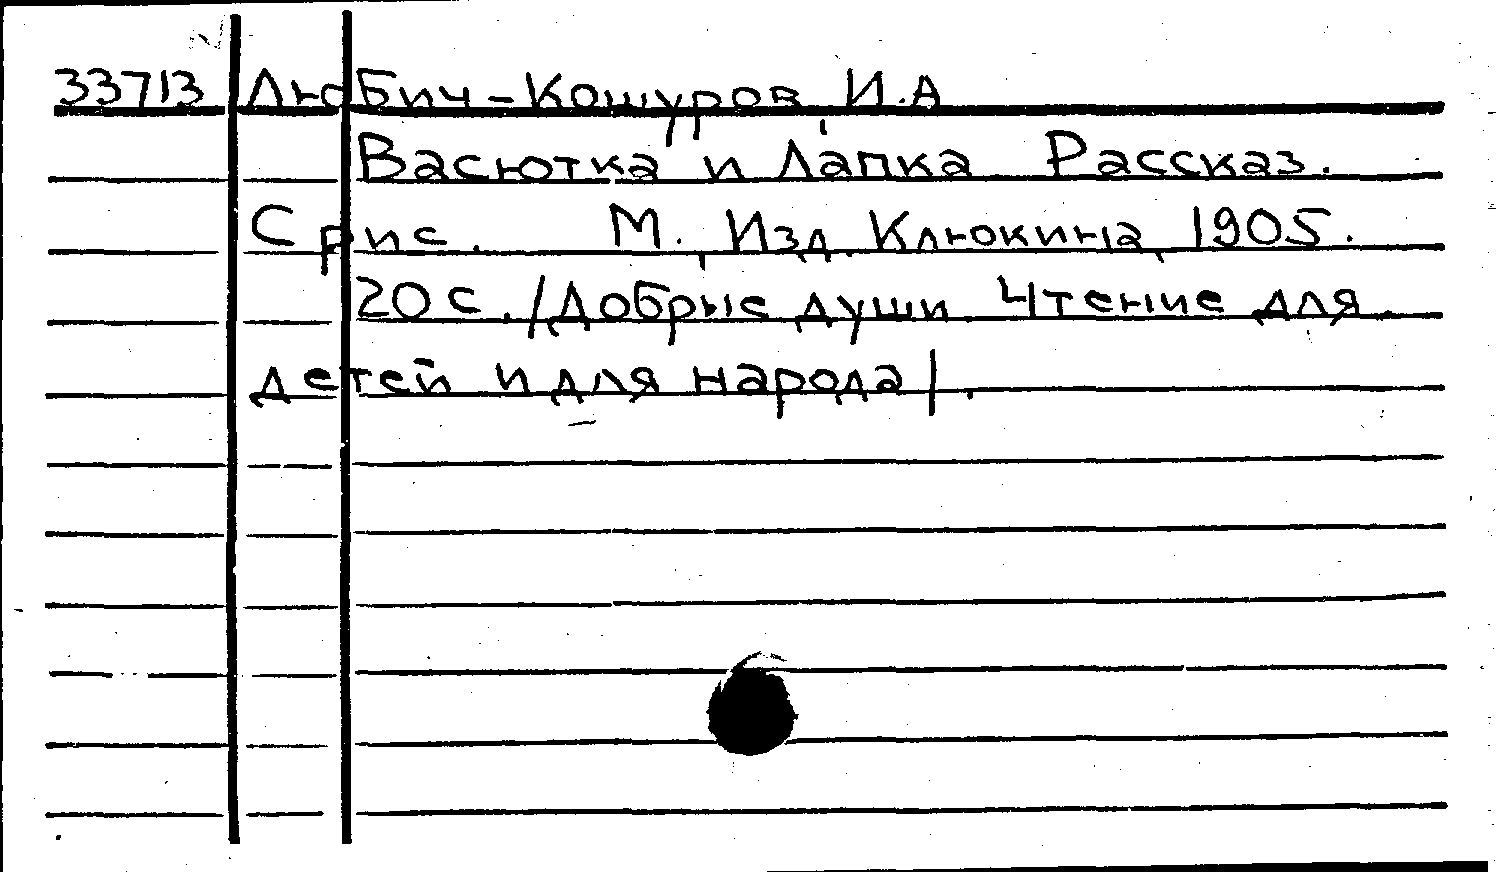 33713 Любич-Кошуров И.А
Васютка и Лапка Рассказ.
С рис. М., Изд. Клюкина, 1905.
20 с. /Добрые души. Чтение для
детей и для народа/.